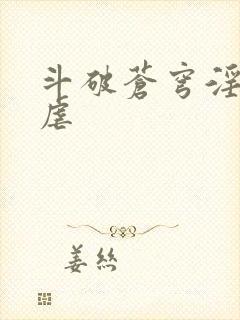 斗破蒼穹淫
虐
姜丝